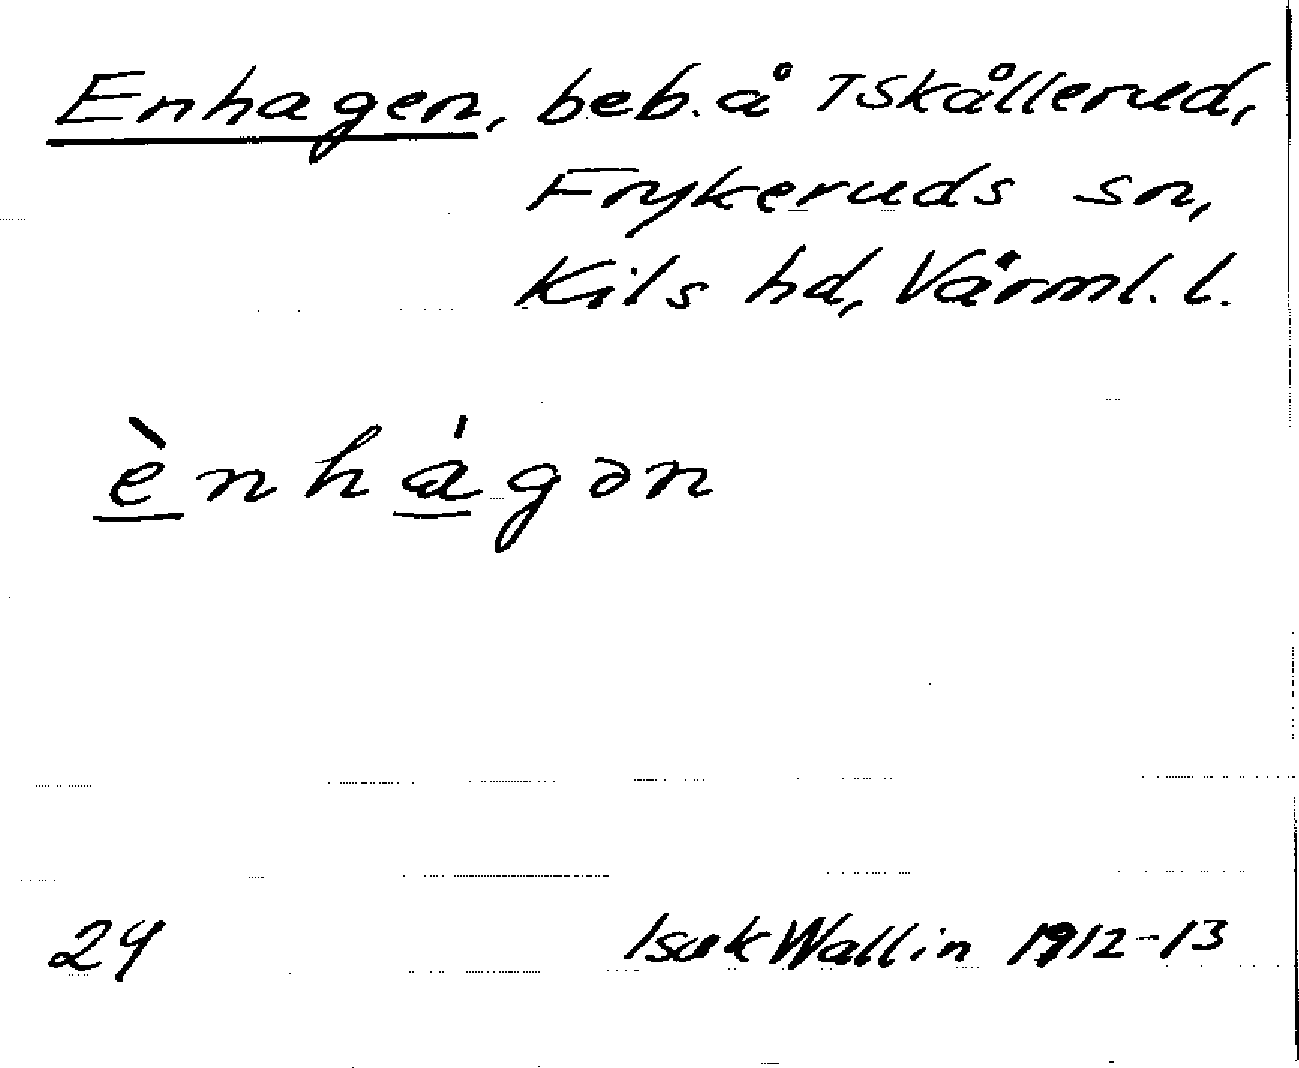 Enhagen, beb. å TSkållerud,
Frykeruds sn,
Kils hd, Värml. l.
ènhágən
24 Isak Wallin 1912-13